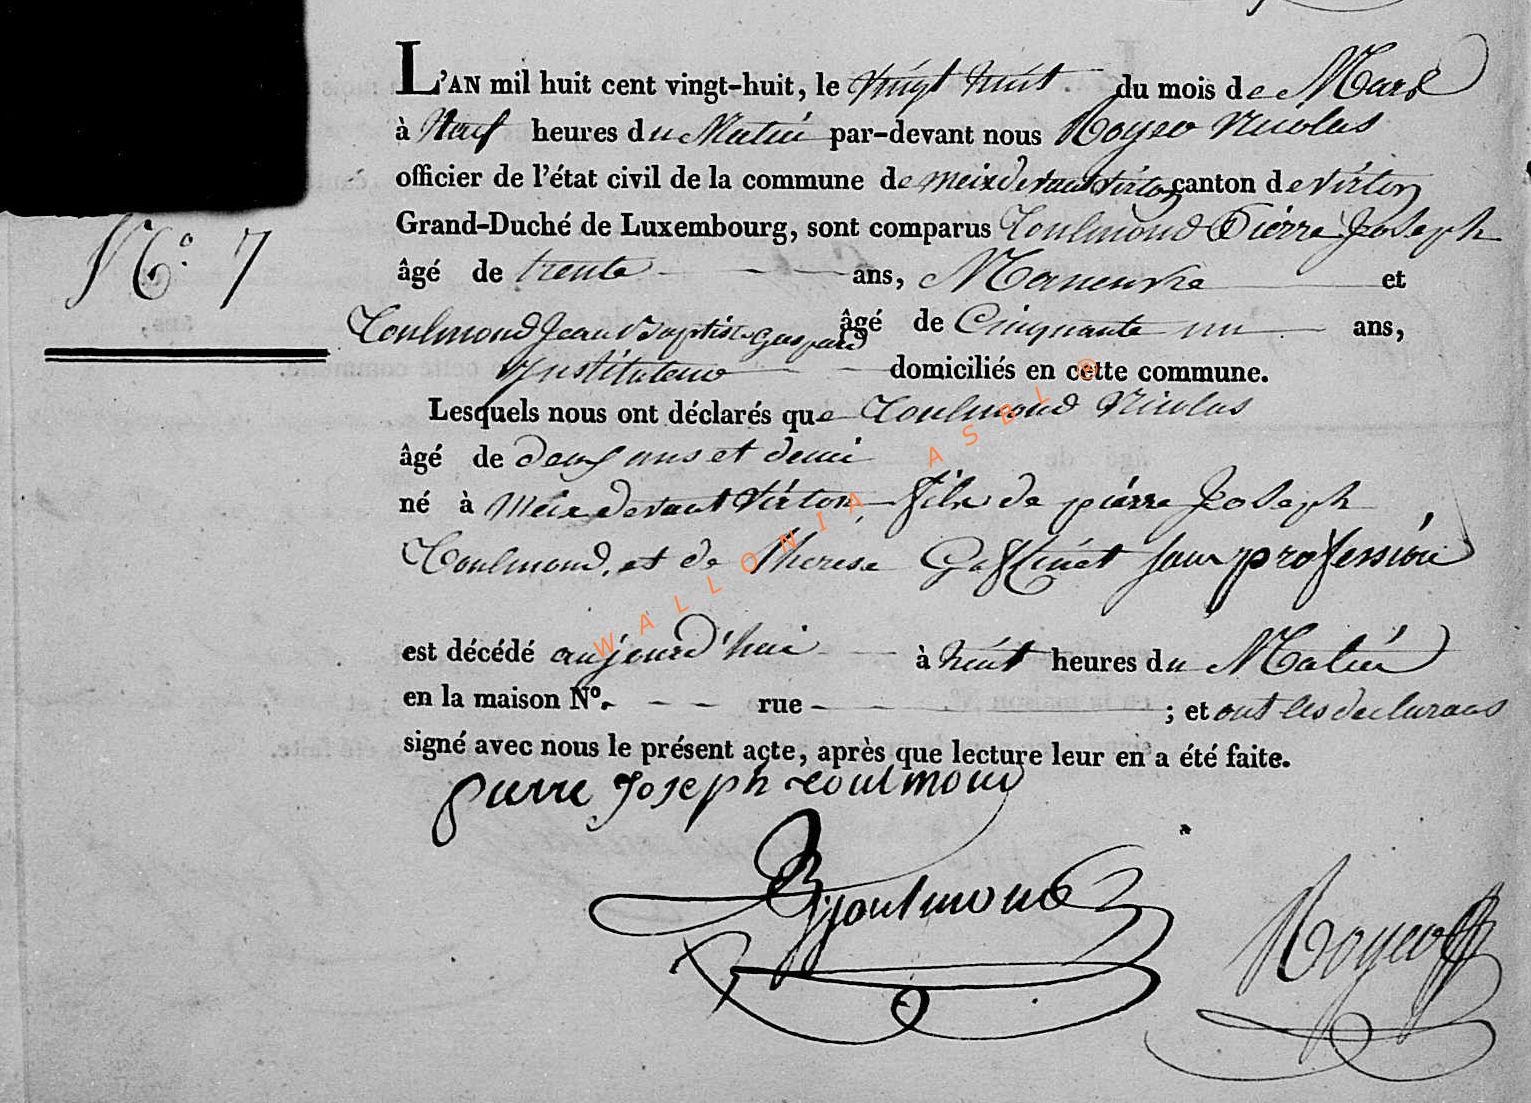 L'AN mil huit cent vingt-huit, le vingt huit du mois de Mars
à Neuf heures du Matin par-devant nous Royer Nicolas
officier de l'état civil de la commune de meix devant virton canton de virton
Grand-Duché de Luxembourg, sont comparus Toulmond Pierre Joseph
N.° 7
âgé de trente ans, Maneuvre et
Toulmond Jean Baptiste Gaspard âgé de Cinquante un ans,
Instituteur domiciliés en cette commune.
Lesquels nous ont déclarés que Toulmond Nicolas
âgé de deux ans et demi
né à Meix devant Virton fils de pierre Joseph
Toulmond, et de therese sans profession
est décédé aujourd'hui à huit heures du Matin
en la maison N°. rue ; et ont les déclarans
signé avec nous le présent acte, après que lecture leur en a été faite.
pierre Joseph toulmond
Toulmond
Royer
WALLONIA ASBL ®